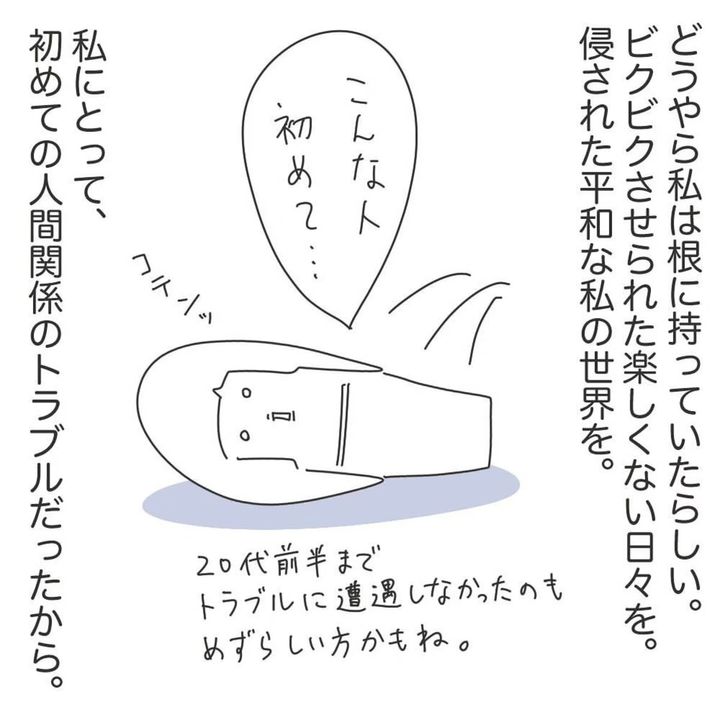 どうやら私は根に持っていたらしい。
ビクビクさせられた楽しくない日々を。
侵された平和な私の世界を。
こんな人
初めて…
コテンッ
20代前半まで
トラブルに遭遇しなかったのも
めずらしい方かもね。
私にとって、
初めての人間関係のトラブルだったから。